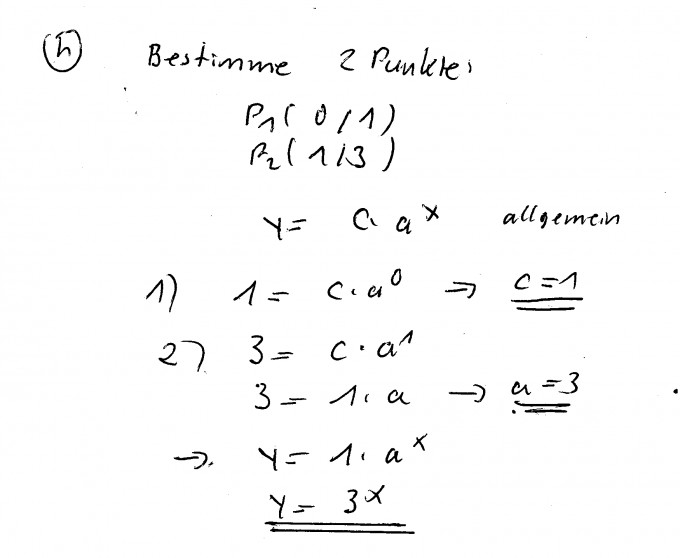 h Bestimme 2 Punkte:
P₁( 0/1)
P₂( 1/3 )
y = c · aˣ allgemein
1) 1 = c · a⁰ ⇒ c = 1
2) 3 = c · a¹
3 = 1 · a → a = 3
→ y = 1 · aˣ
y = 3ˣ